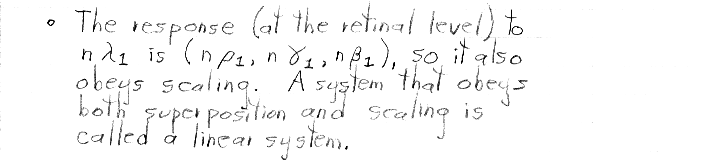 • The response (at the retinal level) to
nλ1 is (nρ1, nγ1, nβ1), so it also
obeys scaling. A system that obeys
both superposition and scaling is
called a linear system.